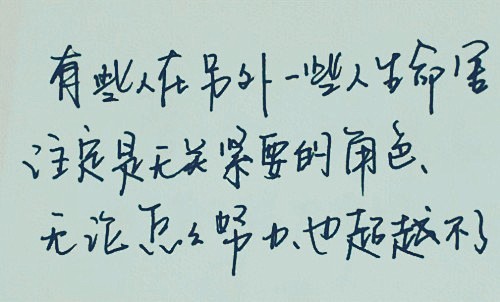 有些人在另外一些人生命里
注定是无关紧要的角色、
无论怎么努力、也超越不了